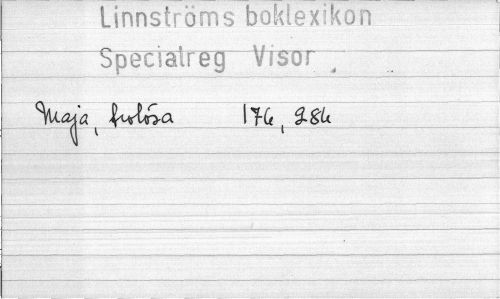 Linnströms boklexikon
Specialreg Visor
Maja, trolösa 176, 286